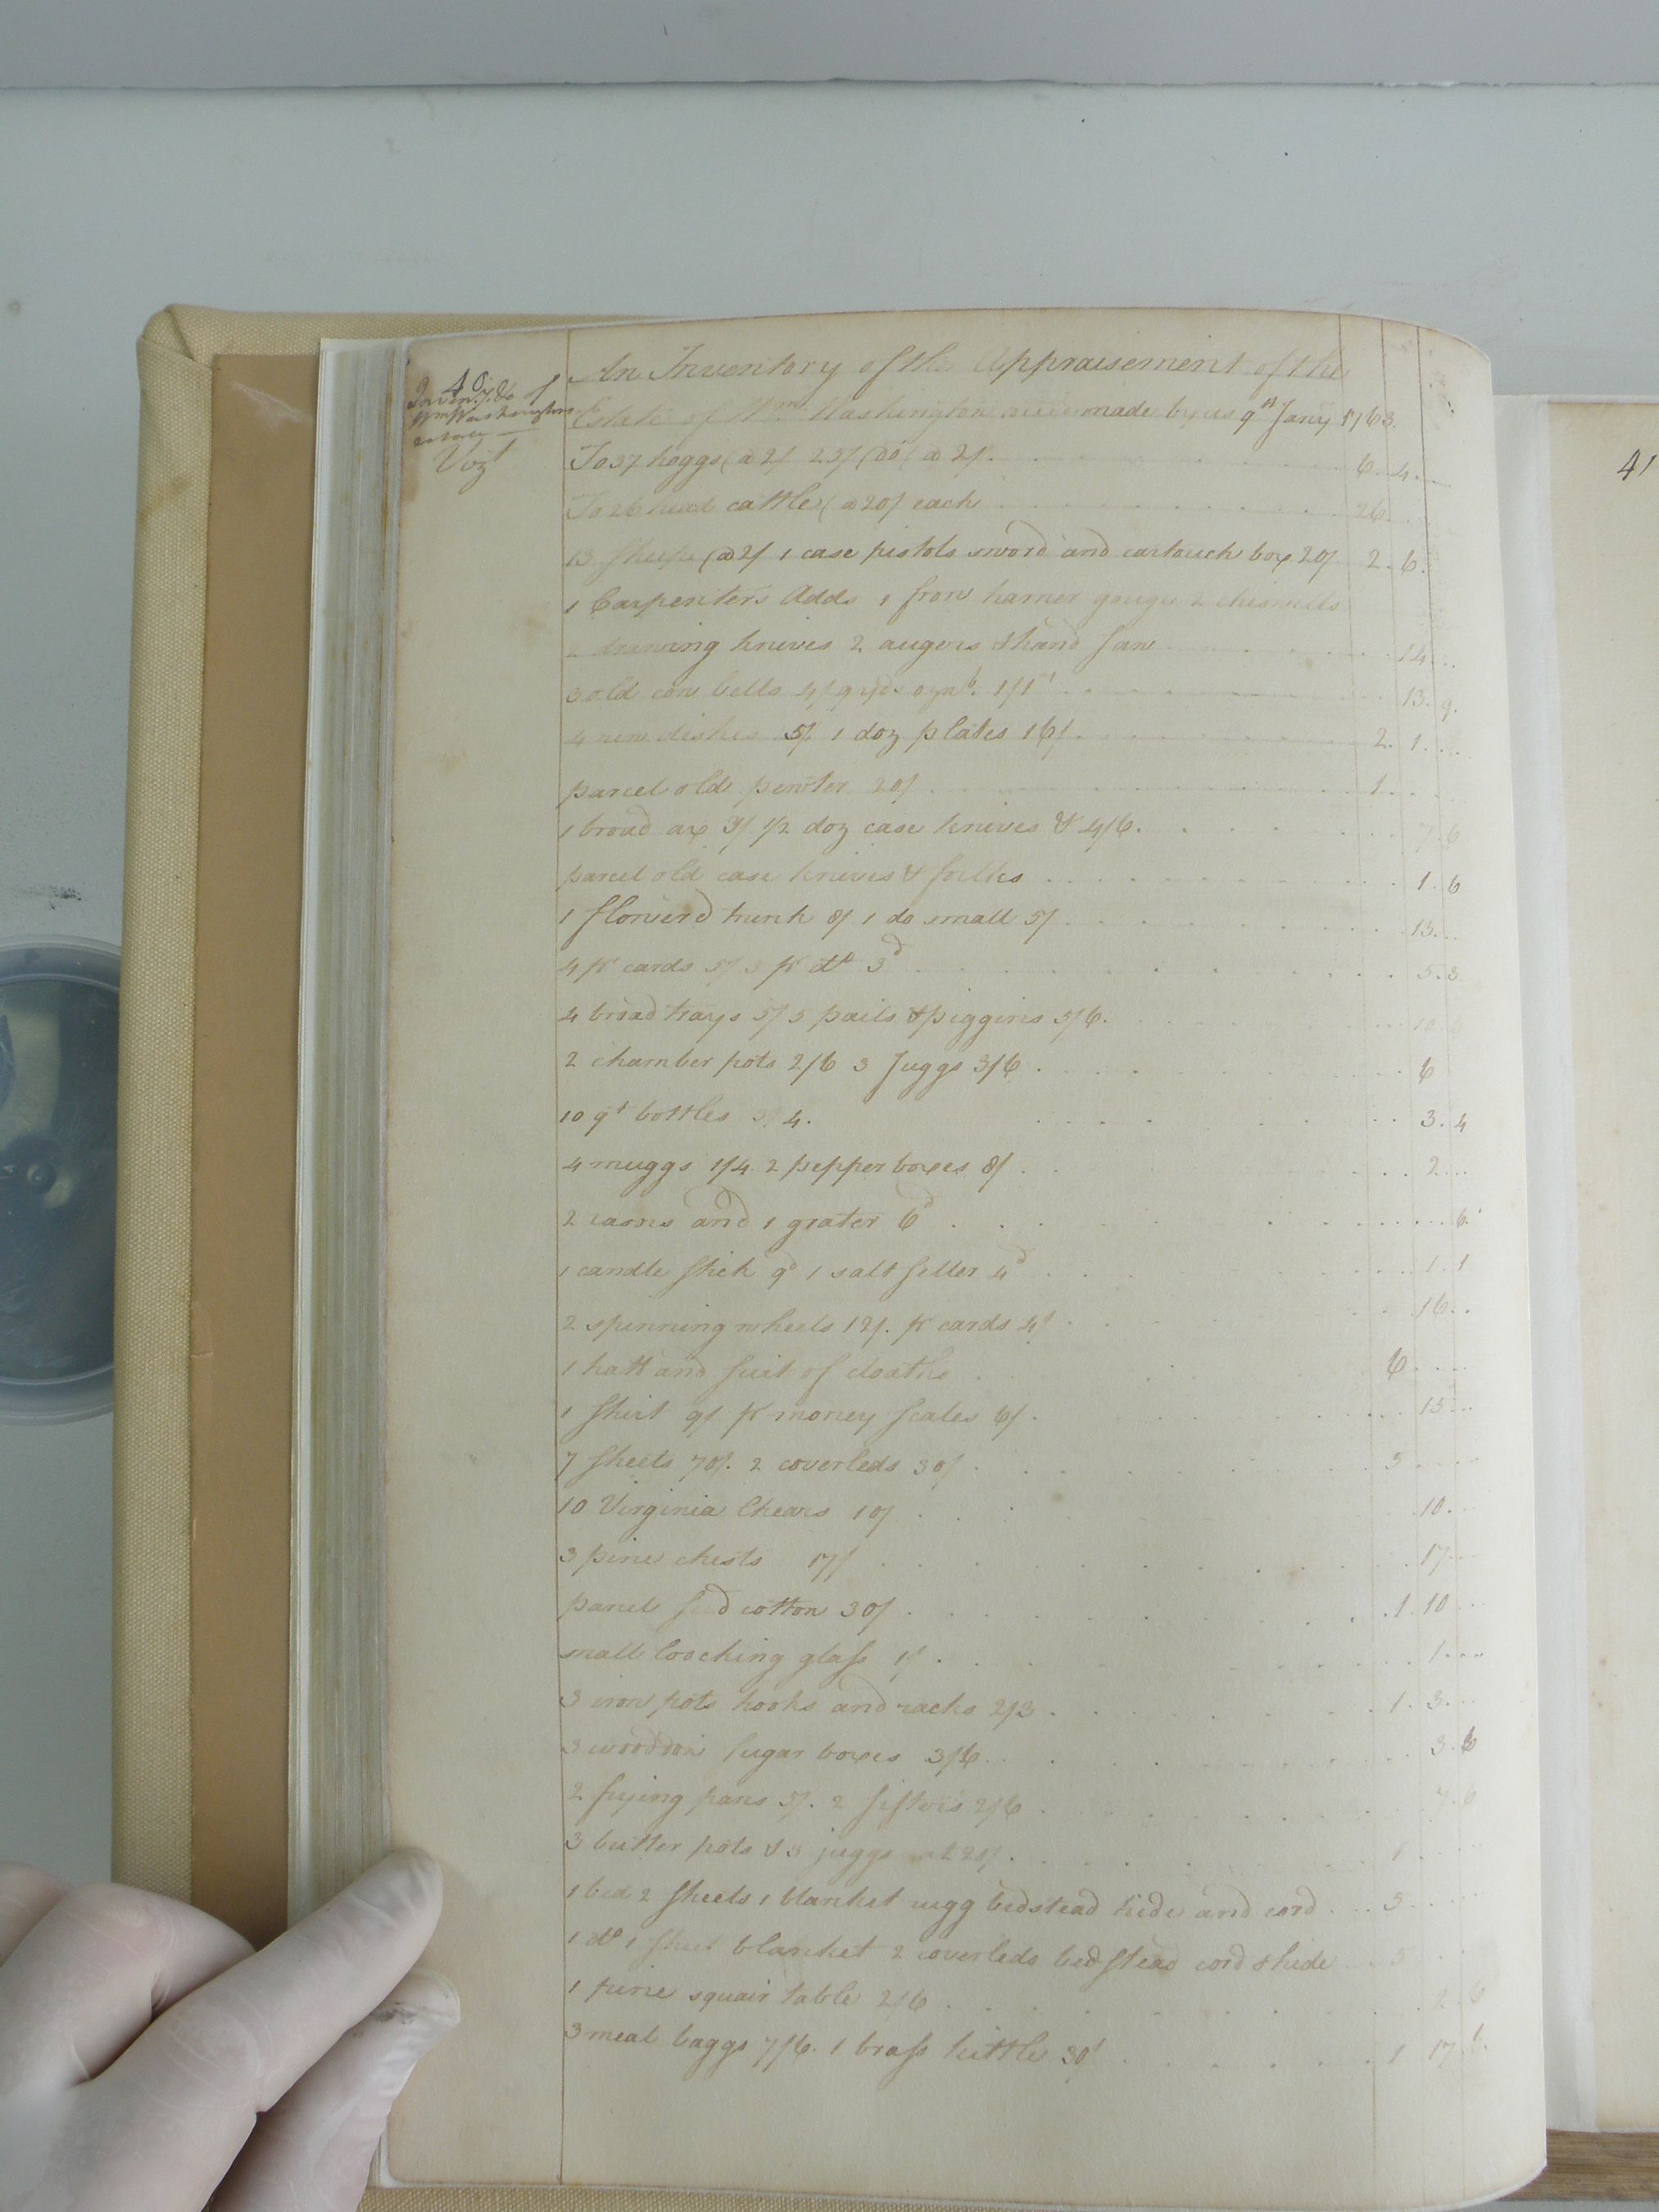 40
Inventy &c of
Wm Washingtons
estate
Vizt
An Inventory of the Appraisement of the
Estate of Wm Washington made by us 9th Jany 1763.
To 37 hoggs @ 2/ 25/ do @ 2/ 6. 4.
To 26 head cattle @ 20/ each 26
13 sheep @ 2/ 1 case pistols sword and cartouch box 20/ 2. 6.
1 Carpenters Adds 1 frow hamer gouge 2 chissells
drawing knives 2 augers & hand saw 14
3 old cow bells 4/ 13. 9.
4 new dishes 5/. 1 doz plates 16/ 2. 1.
parcel old pewter 20/ 1
1 broad ax 3/ 1/2 doz case knives & 4/6. 7. 6
parcel old case knives & folks 1. 6
1 flowerd trunk 8/ 1 do small 5/ 13.
4 pr cards 5/ 3 pr do 3d 5. 3
4 broad trays 5/ 5 pails & piggins 5/6. 10 6
2 chamber pots 2/6 3 Juggs 3/6 6
10 qt bottles 3/4. 3. 4
4 muggs 1/4 2 pepper boxes 8/ 2
2 and 1 grater 6d 6.
1 candle stick 9d 1 salt seller 4d 1. 1
2 spinning wheels 12/. pr cards 4/ 16.
1 hatt and suit of cloaths 6
1 shirt 9/ pr money scales 6/ 15
7 sheets 70/. 2 coverleds 30/ 5
10 Virginia Chears 10/ 10.
3 pine chests 17/ 17
parcel seed cotton 30/ 1. 10
small loocking glass 1/ 1
3 iron pots hooks and racks 2/3 1. 3.
3 woodon sugar boxes 3/6 3. 6
2 frying pans 5/. 2 sifters 2/6 7. 6
3 butter pots & 3 juggs at 20/ 1
1 bed 2 sheets 1 blanket rugg bedstead hide and cord 5
1 do 1 sheet blanket 2 coverleds bedstead cord & hide 5
1 pine squair table 2/6 2. 6
3 meal baggs 7/6. 1 brass kittle 30/ 1 17. 6.
41